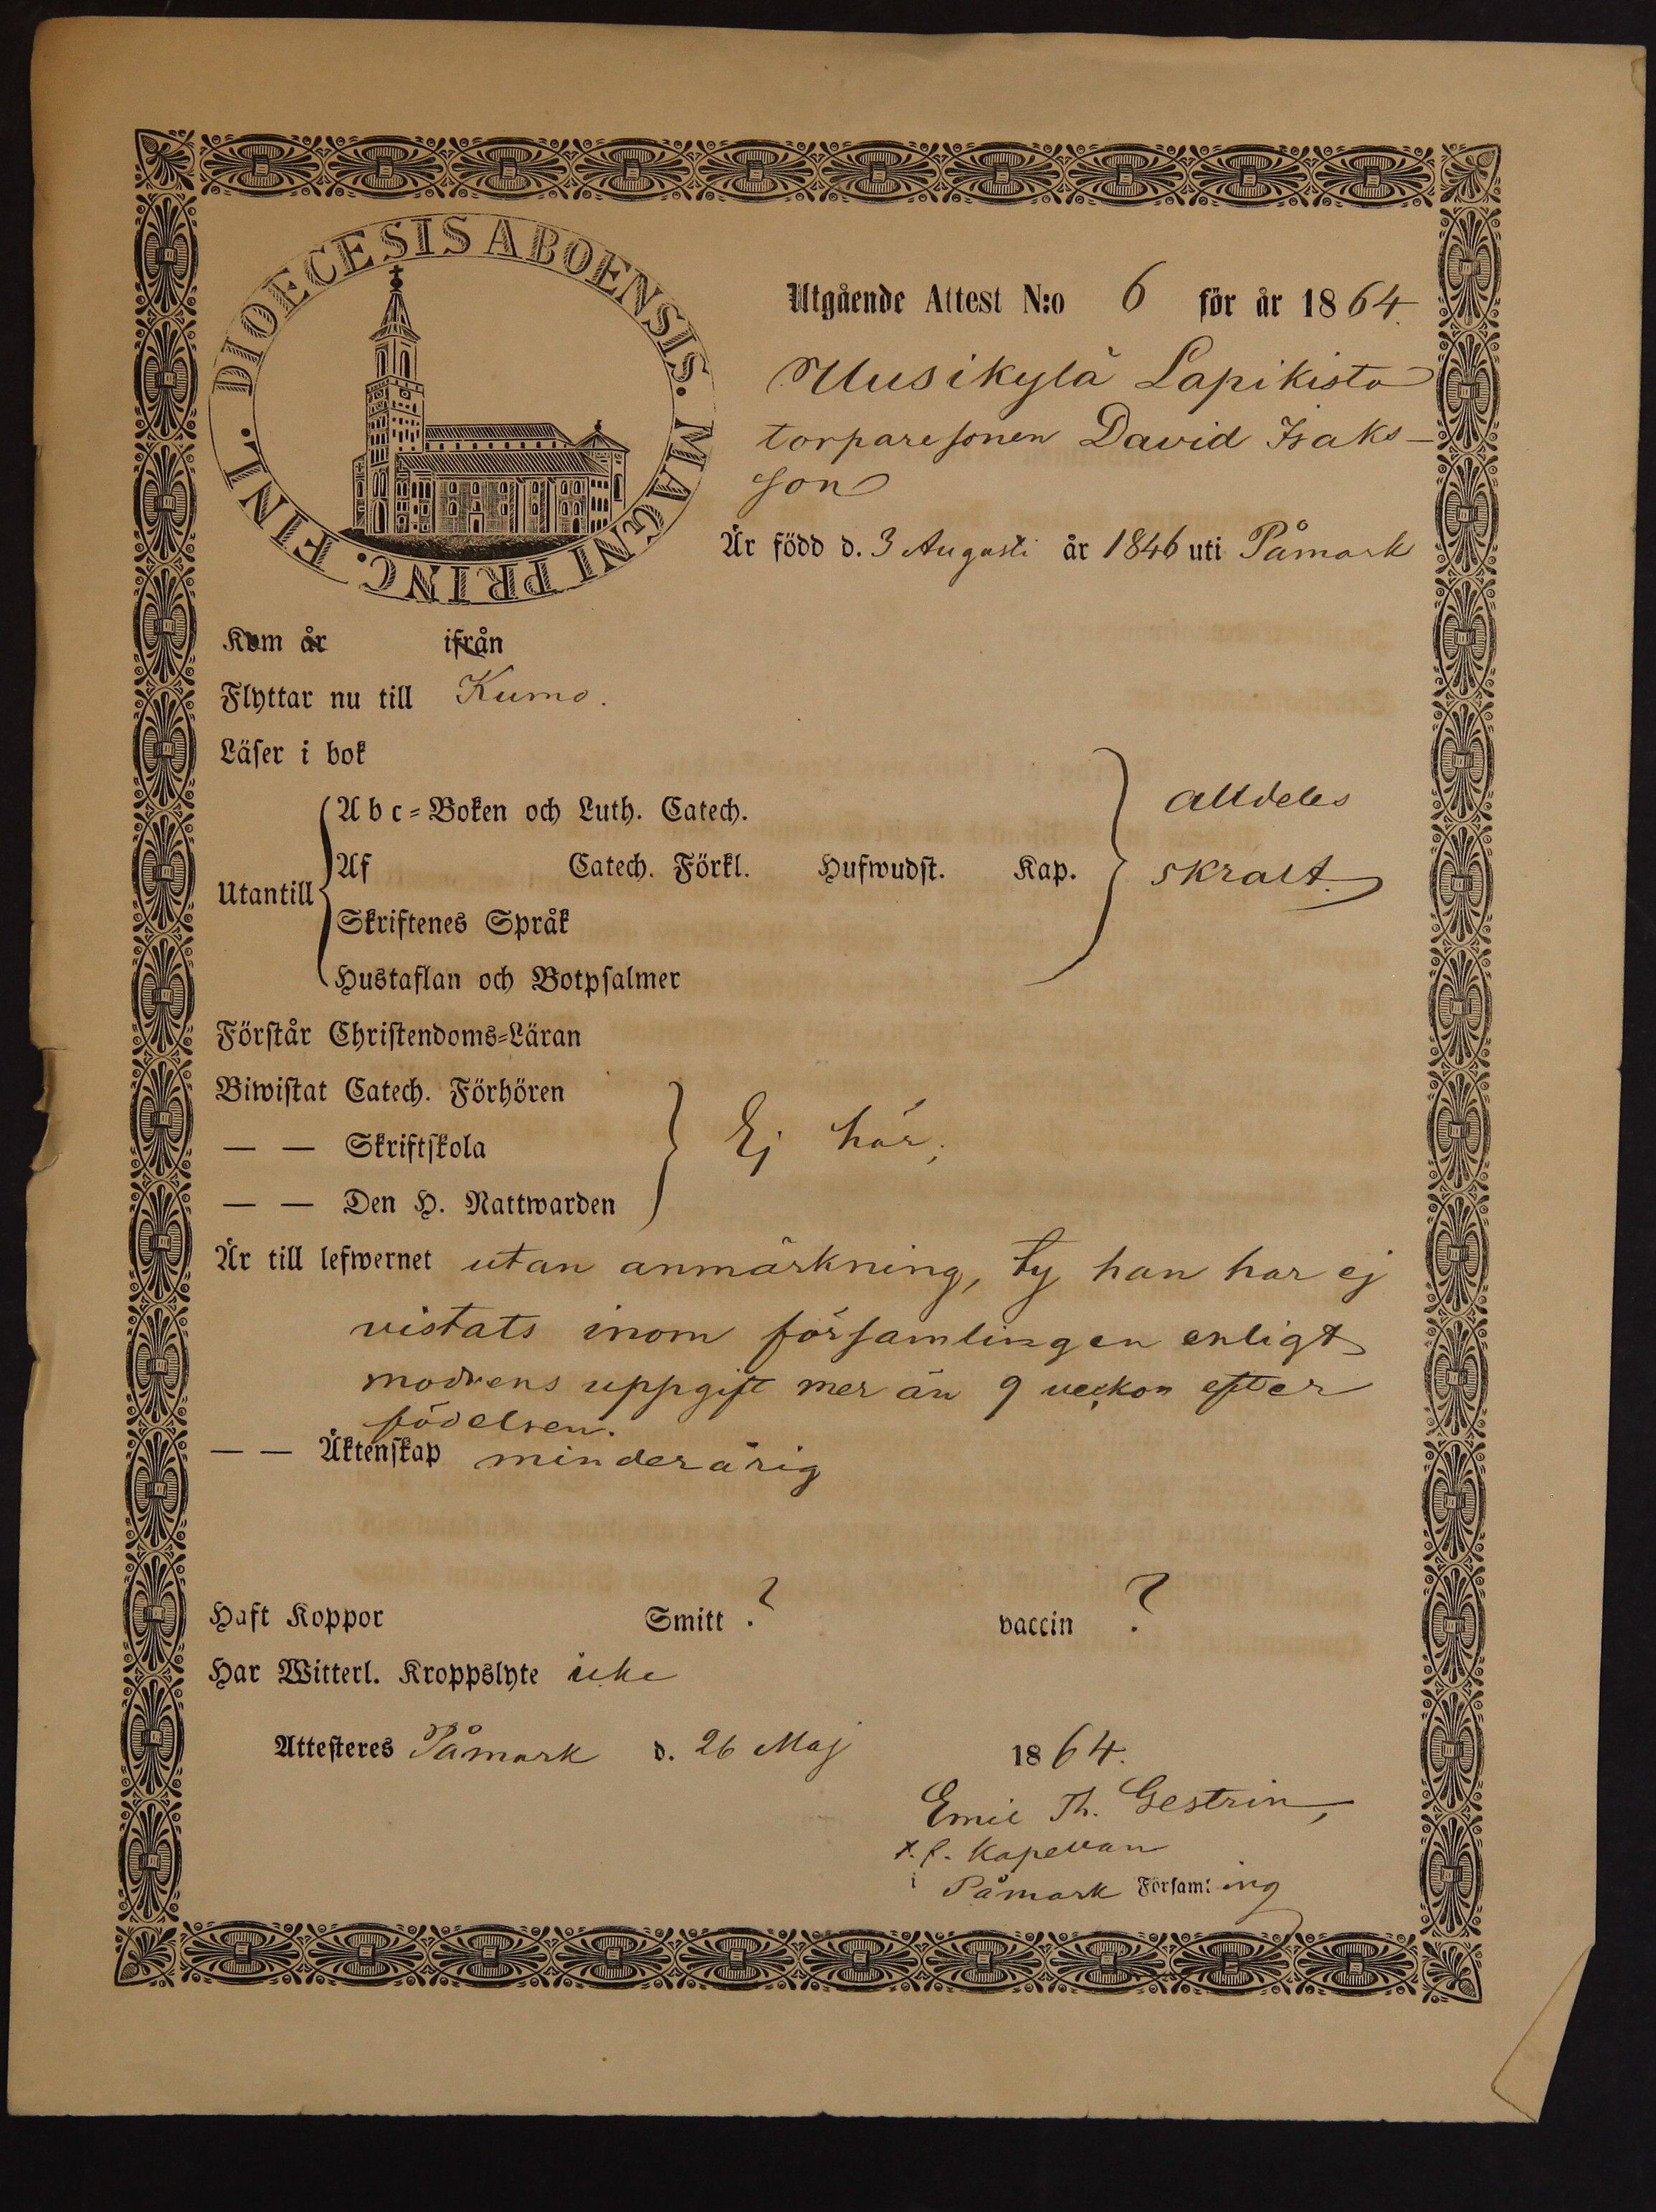 DIOECESIS ABOENSIS. MAGNI PRINC. FINL.
Utgående Attest N:o 6 för år 1864.
Uusikylä Lapikisto
torparesonen David Isaks-
son
Är född d. 3 Augusti år 1846 uti Påmark
Kom år ifrån
Flyttar nu till Kumo.
Läser i bok
Abc-Boken och Luth. Catech.
alldeles
Utantill
Af Catech. Förkl. Hufwudst. Kap.
skralt.
Skriftenes Språk
Hustaflan och Botpsalmer
Förstår Christendoms-Läran
Biwistat Catech. Förhören
— — Skriftskola
Ej här,
— — Den H. Nattwarden
Är till lefwernet utan anmärkning, ty han har ej
vistats inom församlingen enligt
modrens uppgift mer än 9 veckor efter
födelsen.
— — Äktenskap minderårig
Haft Koppor Smitt ? vaccin ?
Har Witterl. Kroppslyte icke
Attesteres Påmark d. 26 Maj 1864.
Emil Th. Gestrin,
t. f. Kapellan
i Påmark Församling